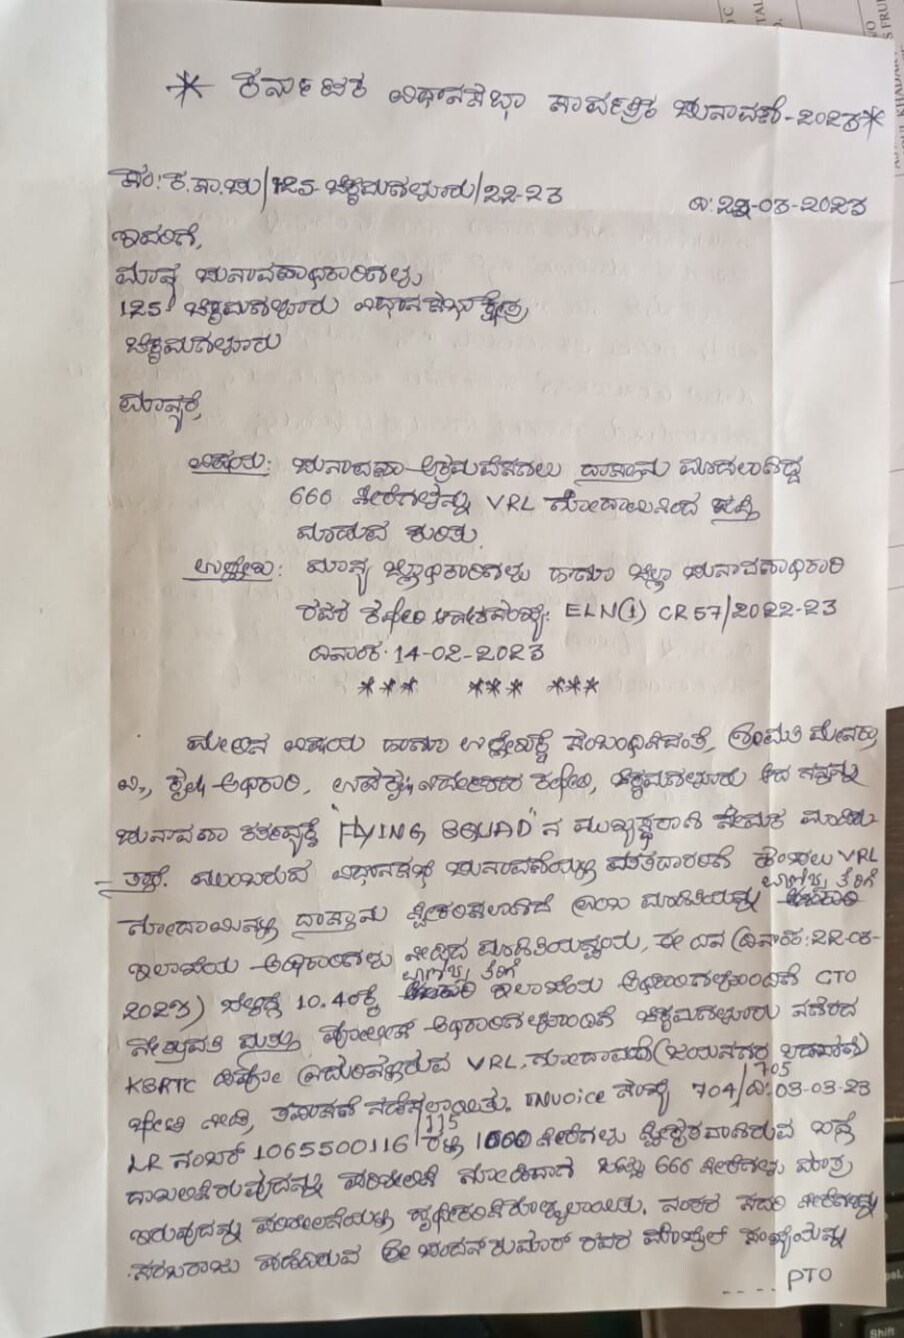 * ಕರ್ನಾಟಕ ವಿಧಾನಸಭಾ ಸಾರ್ವತ್ರಿಕ ಚುನಾವಣೆ-2023*
ಸಂ: ಕ.ಸಾ.ಚು/125-ಚಿಕ್ಕಮಗಳೂರು/22-23
ದಿ: 22-03-2023
ಇವರಿಗೆ,
ಮಾನ್ಯ ಚುನಾವಣಾಧಿಕಾರಿಗಳು
125 ಚಿಕ್ಕಮಗಳೂರು ವಿಧಾನಸಭಾ ಕ್ಷೇತ್ರ
ಚಿಕ್ಕಮಗಳೂರು
ಮಾನ್ಯರೆ,
ವಿಷಯ: ಚುನಾವಣಾ ಅಕ್ರಮವೆಸಗಲು ದಾಸ್ತಾನು ಮಾಡಲಾಗಿದ್ದ
666 ಸೀರೆಗಳನ್ನು VRL ಗೋದಾಮಿನಿಂದ ಜಪ್ತಿ
ಮಾಡುವ ಕುರಿತು.
ಉಲ್ಲೇಖ: ಮಾನ್ಯ ಜಿಲ್ಲಾಧಿಕಾರಿಗಳು ಹಾಗೂ ಜಿಲ್ಲಾ ಚುನಾವಣಾಧಿಕಾರಿ
ರವರ ಕಛೇರಿ ಆದೇಶಸಂಖ್ಯೆ: ELN(1) CR57/2022-23
ದಿನಾಂಕ: 14-02-2023
*** *** ***
ಮೇಲಿನ ವಿಷಯ ಹಾಗೂ ಉಲ್ಲೇಖಕ್ಕೆ ಸಂಬಂಧಿಸಿದಂತೆ, ಶ್ರೀಮತಿ
ಕೃಷಿ ಅಧಿಕಾರಿ, ಉಪ ಕೃಷಿ ನಿರ್ದೇಶಕರ ಕಛೇರಿ, ಚಿಕ್ಕಮಗಳೂರು ಆದ ನನ್ನನ್ನು
ಚುನಾವಣಾ ಕರ್ತವ್ಯಕ್ಕೆ "FLYING SQUAD"ನ ಮುಖ್ಯಸ್ಥರಾಗಿ ನೇಮಕ ಮಾಡಿರು
-ತ್ತಾರೆ. ಮುಂಬರುವ ವಿಧಾನಸಭೆ ಚುನಾವಣೆಯಲ್ಲಿ ಮತದಾರರಿಗೆ ಹಂಚಲು VRL
ಗೋದಾಮಿನಲ್ಲಿ ದಾಸ್ತಾನು ಮಾಹಿತಿಯನ್ನು ವಾಣಿಜ್ಯ ತೆರಿಗೆ
ಇಲಾಖೆಯ ಅಧಿಕಾರಿಗಳು ನೀಡಿದ ಮಾಹಿತಿಯನ್ವಯ, ಈ ದಿನ (ದಿನಾಂಕ: 22-03-
2023) ಬೆಳಿಗ್ಗೆ 10.40ಕ್ಕೆ ವಾಣಿಜ್ಯ ತೆರಿಗೆ ಇಲಾಖೆಯ ಅಧಿಕಾರಿಗಳೊಂದಿಗೆ CTO
ನೇತ್ರಾವತಿ ಮತ್ತು ಪೋಲೀಸ್ ಅಧಿಕಾರಿಗಳೊಂದಿಗೆ ಚಿಕ್ಕಮಗಳೂರು ನಗರದ
KSRTC ಡಿಪೋ ಎದುರಿನಲ್ಲಿರುವ VRL ಗೋದಾಮಿಗೆ (ಜಯನಗರ ಬಡಾವಣೆ)
ಭೇಟಿ ನೀಡಿ, ತಪಾಸಣೆ ನಡೆಸಲಾಯಿತು. Invoice ಸಂಖ್ಯೆ 704/705 ದಿ: 03-03-23
LR ನಂಬರ್ 1065500116/115 ರಲ್ಲಿ 1000 ಸೀರೆಗಳು ಸ್ವೀಕೃತವಾಗಿರುವ ಬಗ್ಗೆ
ದಾಖಲಿಸಿರುವುದನ್ನು ಪರಿಶೀಲಿಸಿ ನೋಡಿದಾಗ ಒಟ್ಟು 666 ಸೀರೆಗಳು ಮಾತ್ರ
ಇರುವುದನ್ನು ಪರಿಶೀಲನೆಯಲ್ಲಿ ದೃಢೀಕರಿಸಿಕೊಳ್ಳಲಾಯಿತು. ನಂತರ ಸದರಿ ಸೀರೆಗಳನ್ನು
ಸರಬರಾಜು ಪಡೆದಿರುವ ಶ್ರೀ ಚಂದನ್ ಕುಮಾರ್ ರವರ ಮೊಬೈಲ್ ಸಂಖ್ಯೆಯನ್ನು
---- PTO